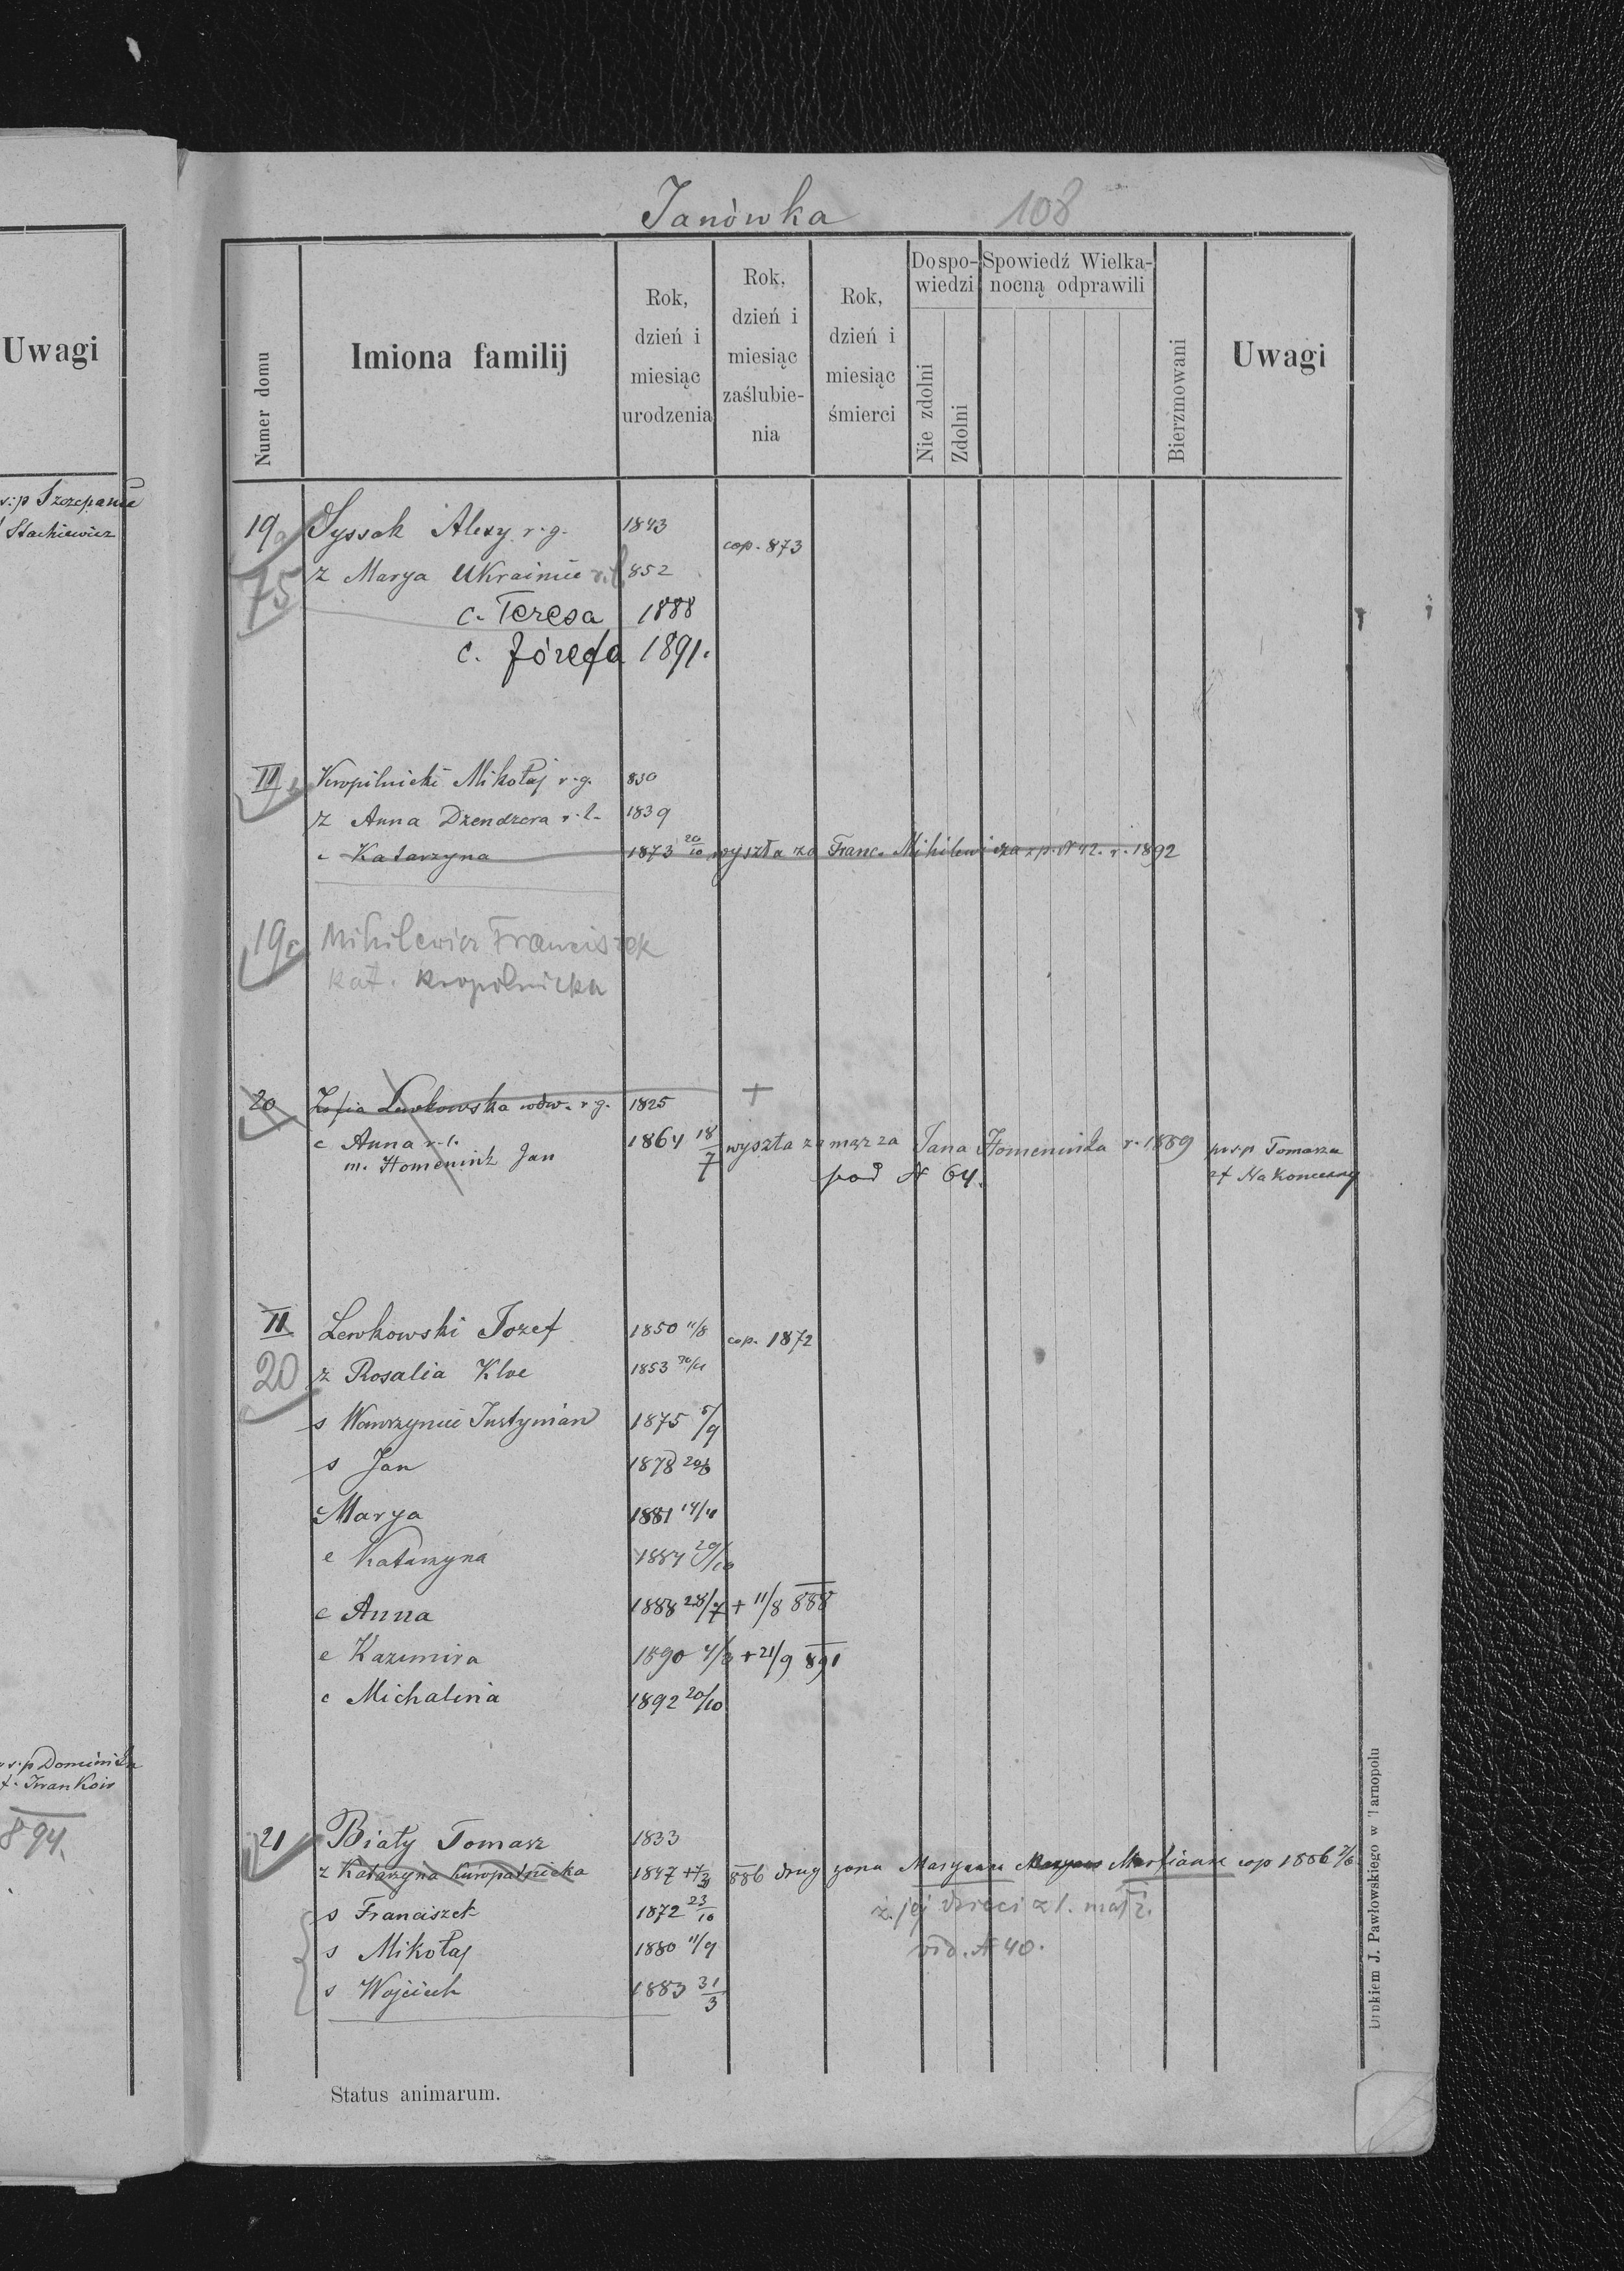 Uwagi
v:p Szczepanie
Stachiewicz
v:p Dominika
894.
Janówka 108
Numer domu
Imiona familij
Rok, dzień i miesiąc urodzenia
Rok, dzień i miesiąc zaślubie-nia
Rok, dzień i miesiąc śmierci
Do spo-wiedzi
Nie zdolni
Zdolni
Spowiedź Wielka-nocną odprawili
Bierzmowani
Uwagi
19a Syssak Alexy r.g. 1843
cop. 873
75 z Marya Ukrainiec r.l. 852
c. Teresa 1888
c. Józefa 1891.
II Kropilnicki Mikołaj r.g. 830
z Anna Dzendzera r.l. 1839
c Katarzyna 1873 20/10 wyszła za Franc. Mihilewicza z p. N 42. r. 1892
19c Mihilewicz Franciszek
Kat. Kropilnicka
20 Zofia Lewkowska wdw. r.g. 1825 +
c Anna r.l. 1864 18/7 wyszła zamąż za Jana Homeniuka r. 1889
m. Homeniuk Jan pod N 64.
po s.p Tomaszu
Nakoneczny
II Lewkowski Jozef 1850 11/8 cop. 1872
20 z Rosalia Kloc 1853
s Wawrzyniec Justynian 1875 5/9
s Jan 1878
c Marya 1881
c Katarzyna 1884 20/10
c Anna 1888 28/7 + 11/8 888
c Kazimira 1890 + 21/9 891
c Michalina 1892 20/10
21 Biały Tomasz 1833
z Katarzyna Kuropatnicka 1847 + 886 drug żona Maryanna cop 1886
s Franciszek 1872 23/10
ż. jej dzieci z 1. małż.
s Mikołaj 1880 11/9
vid. N 40.
s Wojciech 1883 31/3
Status animarum.
Drukiem J. Pawłowskiego w Tarnopolu